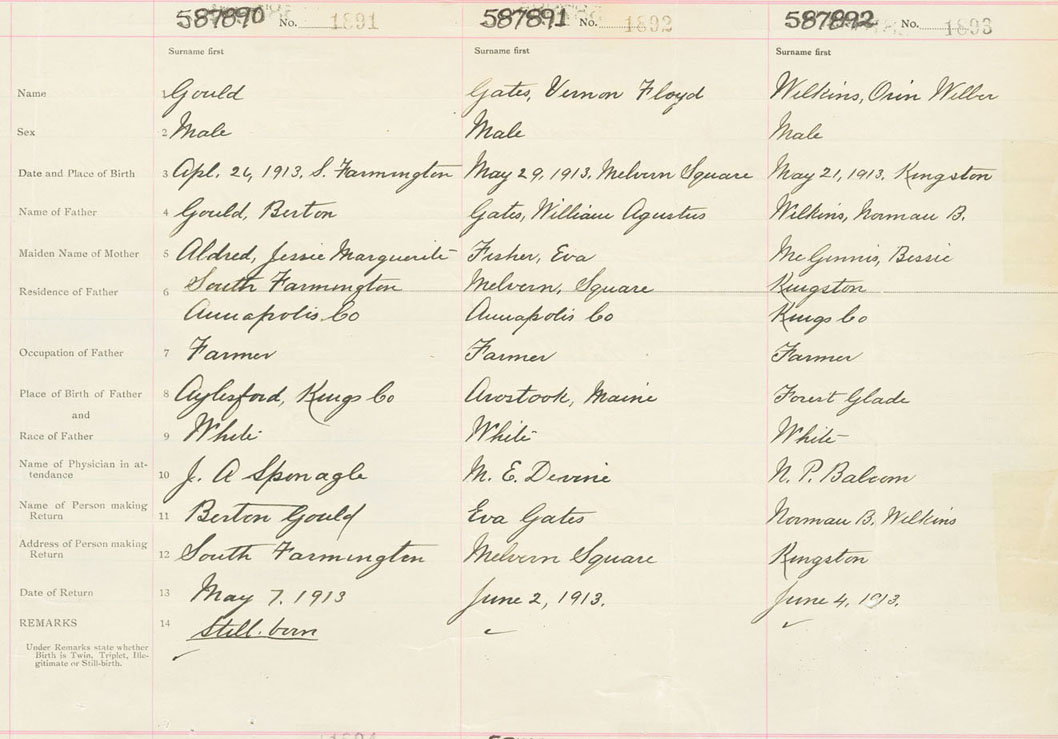 587890 No. 1891 587891 No. 1892 587892 No. 1893
Surname first Surname first Surname first
Name 1 Gould Gates, Vernon Floyd Wilkins, Orin Wilber
Sex 2 Male Male Male
Date and Place of Birth 3 Apl. 26, 1913. S. Farmington May 29, 1913. Melvern Square May 21, 1913. Kingston
Name of Father 4 Gould, Berton Gates, William Agustus Wilkins, Norman B.
Maiden Name of Mother 5 Aldred, Jessie Marguerite Fisher, Eva McGinnis, Bessie
Residence of Father 6 South Farmington Melvern, Square Kingston
Annapolis Co Annapolis Co Kings Co
Occupation of Father 7 Farmer Farmer Farmer
Place of Birth of Father 8 Aylesford, Kings Co Arostook, Maine Forest Glade
and
Race of Father 9 White White White
Name of Physician in at-
tendance 10 J. A Sponagle M. E. Devine N. P. Balcom
Name of Person making
Return 11 Berton Gould Eva Gates Norman B. Wilkins
Address of Person making
Return 12 South Farmington Melvern Square Kingston
Date of Return 13 May 7. 1913 June 2, 1913. June 4, 1913.
REMARKS 14 Still-born
Under Remarks state whether
Birth is Twin, Triplet, Ille-
gitimate or Still-birth.